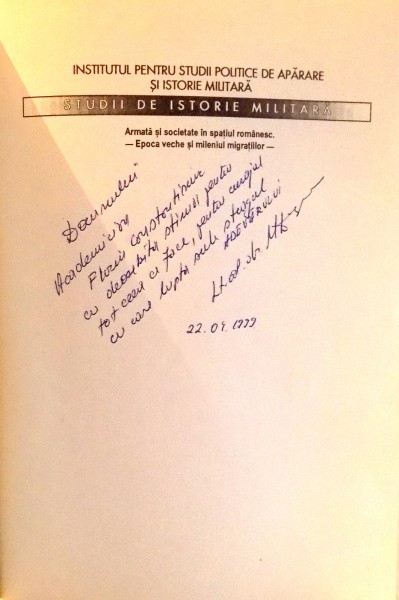 INSTITUTUL PENTRU STUDII POLITICE DE APĂRARE
ȘI ISTORIE MILITARĂ
STUDII DE ISTORIE MILITARĂ
Armată și societate în spațiul românesc.
— Epoca veche și mileniul migrațiilor —
Domnului
Academician
Florin Constantiniu
cu deosebită stimă pentru
tot ceea ce face, pentru curajul
cu care luptă sub steagul
ADEVĂRULUI
22.04.1999